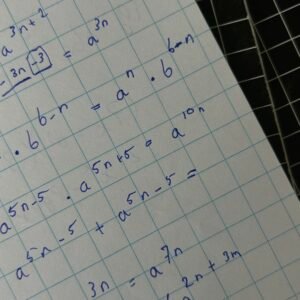 a^{3n+2}
-3n -3 = a^{3n}
· b^{6-n} = a^n · b^{6-n}
a^{5n-5} · a^{5n+5} = a^{10n}
a^{5n-5} + a^{5n-5} =
3n = a^{7n}
2n+3m